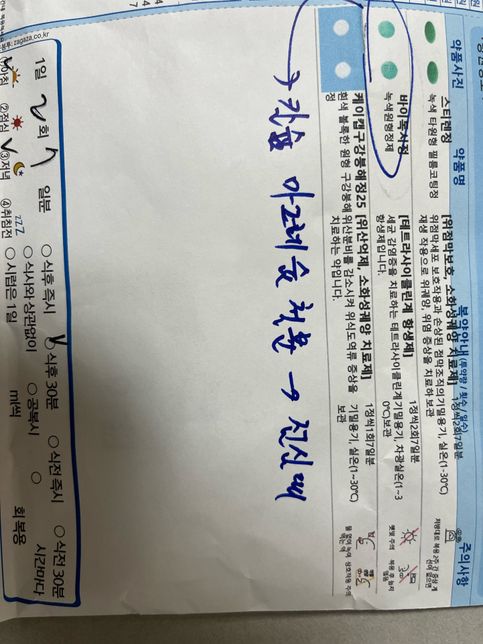 약품사진
약품명
복약안내 (투약량 / 횟수 / 일수)
주의사항
스티렌정
녹색 타원형 필름코팅정
[위점막보호, 소화성궤양 치료제]
1정씩2회7일분
위점막세포 보호작용과 손상된 점막조직의 재생 작용으로 위궤양, 위염 증상을 치료하
기밀용기, 실온(1~30℃) 보관
바이독시정
녹색원형정제
[테트라사이클린계 항생제]
1정씩2회7일분
세균 감염증을 치료하는 테트라사이클린계 항생제입니다.
기밀용기, 차광실온(1~30℃)보관
햇빛 주의
케이캡구강붕해정25
흰색 볼록한 원형 구강붕해정
[위산억제, 소화성궤양 치료제]
1정씩1회7일분
위산분비를 감소시켜 위식도역류 증상을 치료하는 약입니다.
기밀용기, 실온(1~30℃) 보관
칼슘 마그네슘 철분 →
zagaza.co.kr
1일 2회 7 일분
○ 식후 즉시 ○ 식후 30분 ○ 식전 즉시 ○ 식전 30분
①아침 ②점심 ③저녁 ④취침전
○ 식사와 상관없이 ○ 공복시 ○ 시간마다
○ 시럽은 1일 ml씩 회 복용